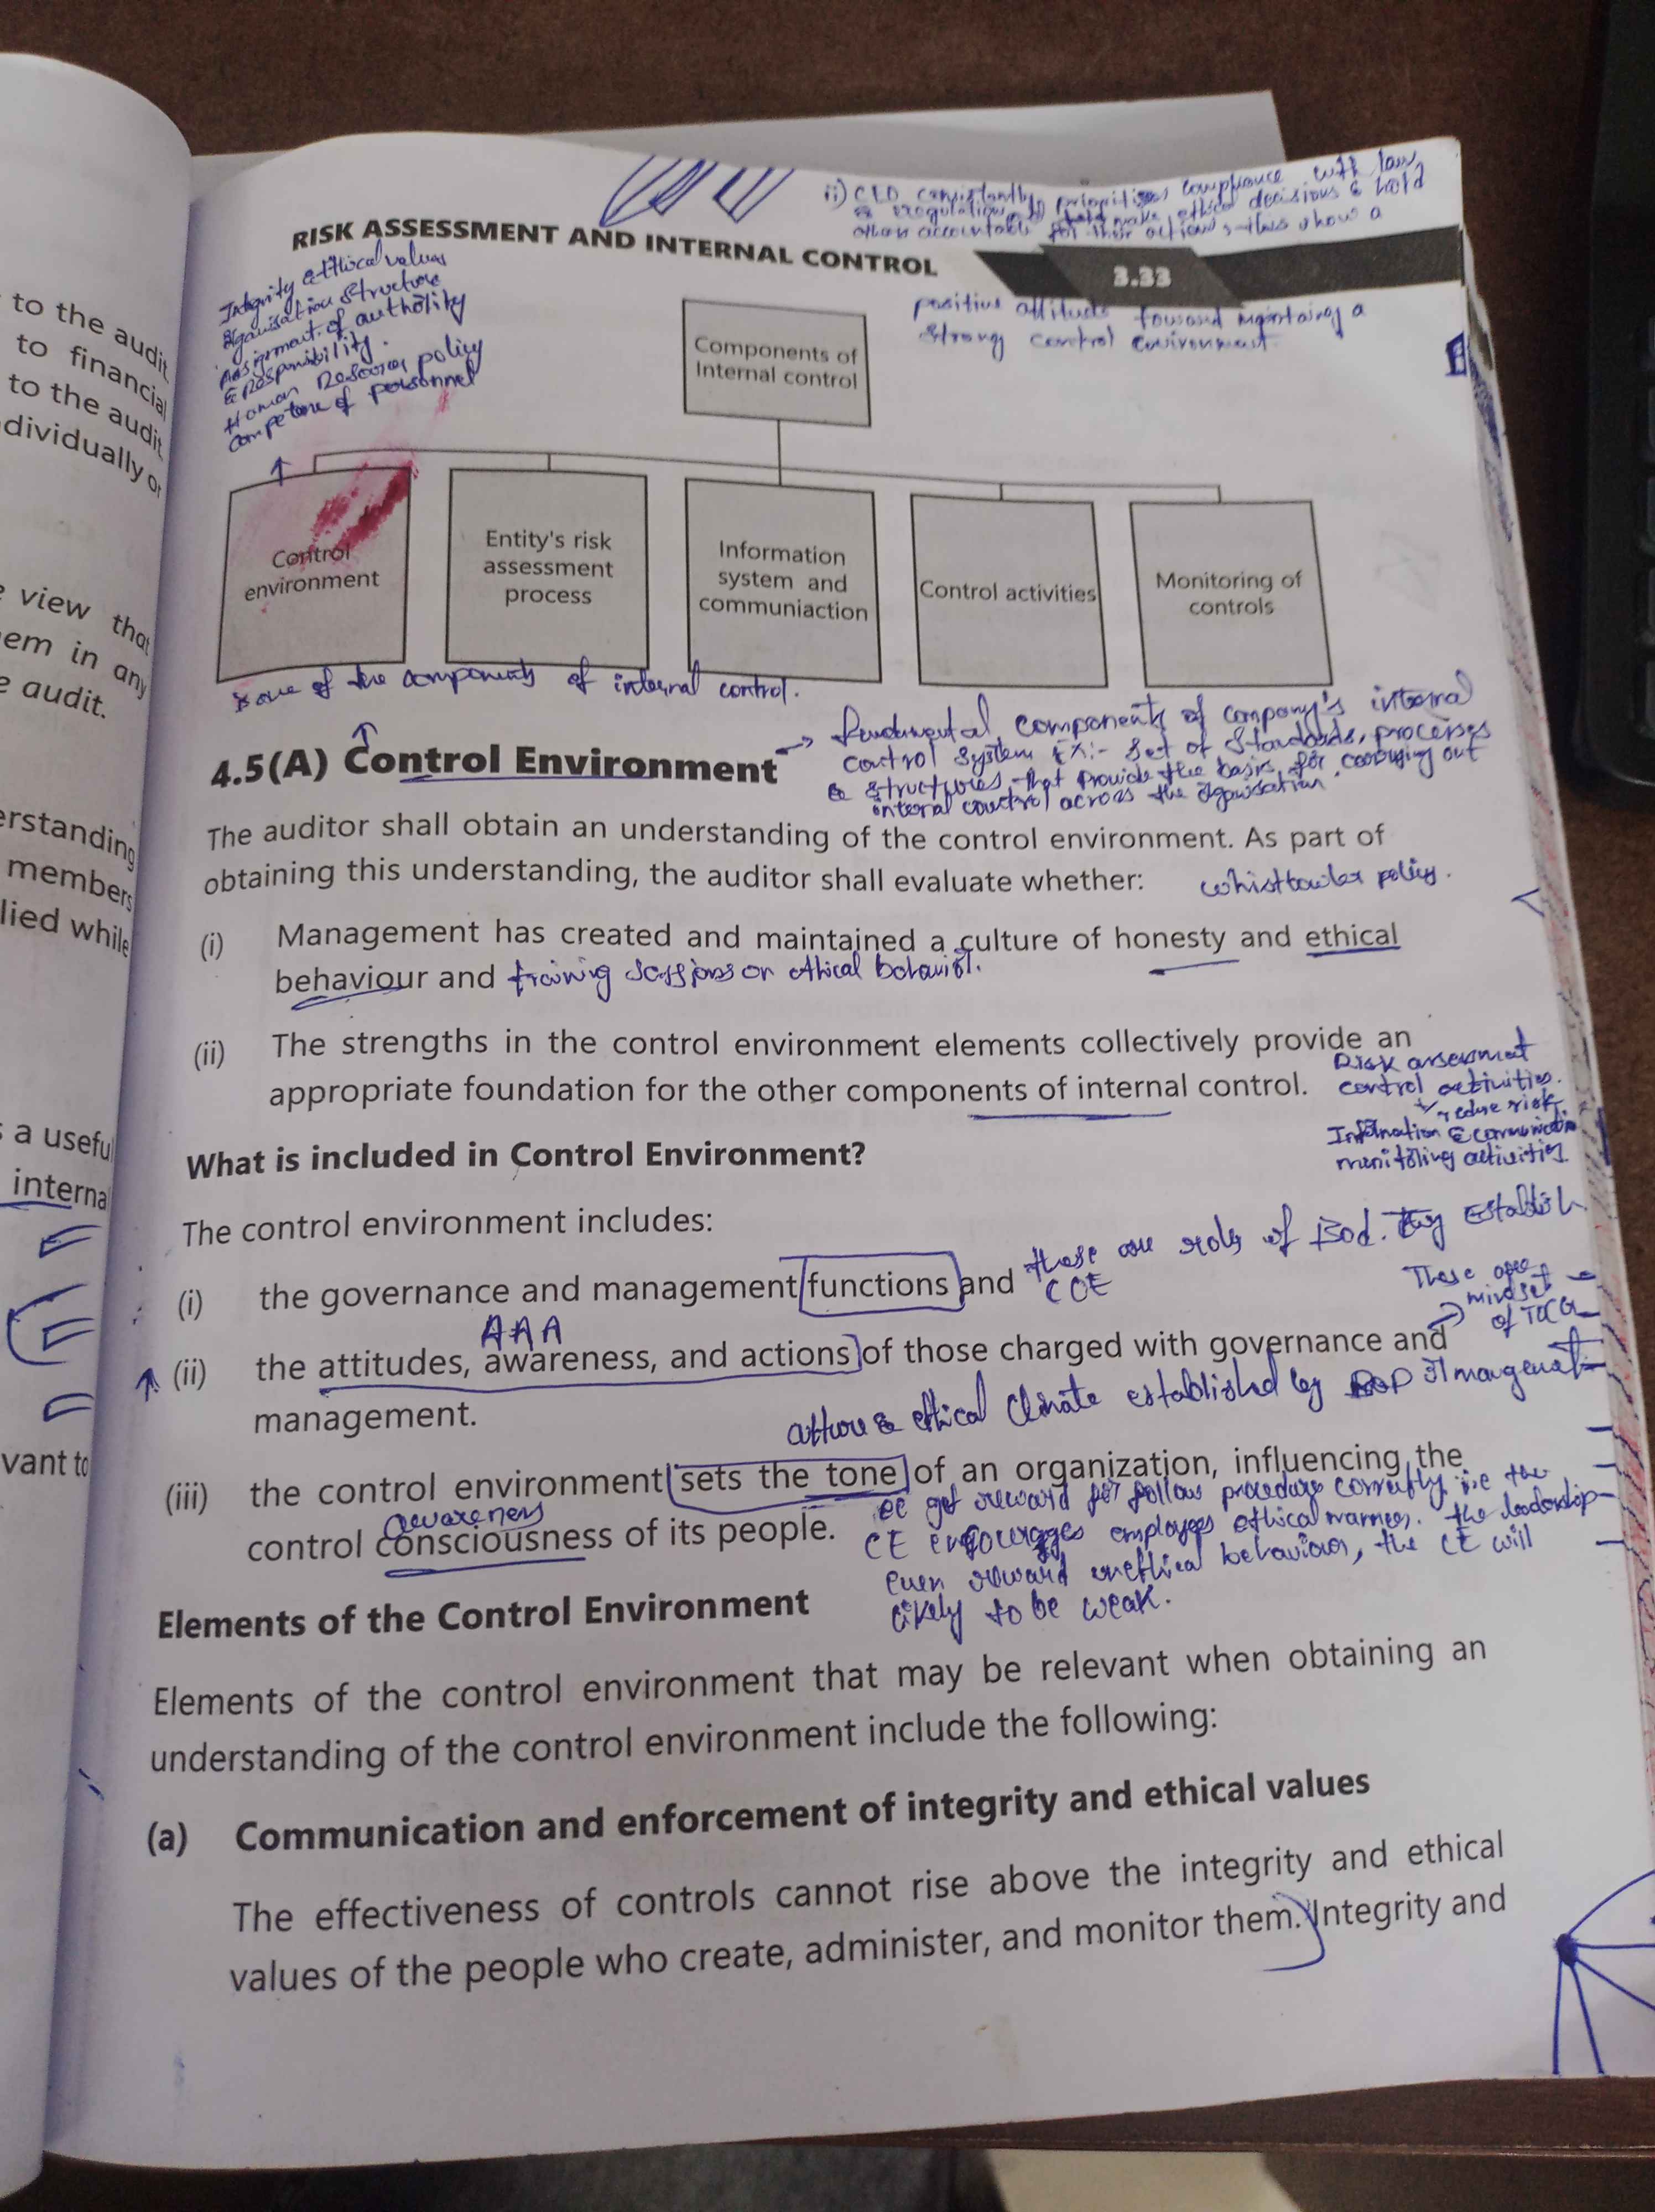 to the audit
to financial
to the audit
dividually or
view that
em in any
audit.
erstanding
members
lied while
a useful
internal
vant to
ii) CEO consistantly prioritises compliance with law
& regulations make ethical decisions & hold
others accountable for their actions - this show a
RISK ASSESSMENT AND INTERNAL CONTROL
3.33
positive attitude toward maintaing a
strong control environment
Integrity & ethical values
Organisation structure
Assignment of authority
& responsibility.
Human Resource policy
competence of personnel
Components of
Internal control
Control
environment
Entity's risk
assessment
process
Information
system and
communiaction
Control activities
Monitoring of
controls
is one of the components of internal control.
4.5(A) Control Environment
fundamental components of company's internal
control system Ex:- set of standards, processes
& structures, that provide the basis for carrying out
internal control across the organisation.
The auditor shall obtain an understanding of the control environment. As part of
obtaining this understanding, the auditor shall evaluate whether:
policy.
(i) Management has created and maintained a culture of honesty and ethical
behaviour and training sessions on ethical
(ii) The strengths in the control environment elements collectively provide an
appropriate foundation for the other components of internal control.
Risk assessment
control activities.
reduce risk
Information &
monitoring activities
What is included in Control Environment?
The control environment includes:
(i) the governance and management functions and
these are role of BOD. They Establish
COE
These are
mindset
of TOCG
AAA
(ii) the attitudes, awareness, and actions of those charged with governance and
management.
& ethical climate established by
(iii) the control environment sets the tone of an organization, influencing the
awareness
control consciousness of its people.
get reward for follow procedure correctly i.e the
CE encourages employees ethical manner. the leadership
even reward unethical behaviour, the CE will
likely to be weak.
Elements of the Control Environment
Elements of the control environment that may be relevant when obtaining an
understanding of the control environment include the following:
(a) Communication and enforcement of integrity and ethical values
The effectiveness of controls cannot rise above the integrity and ethical
values of the people who create, administer, and monitor them. Integrity and